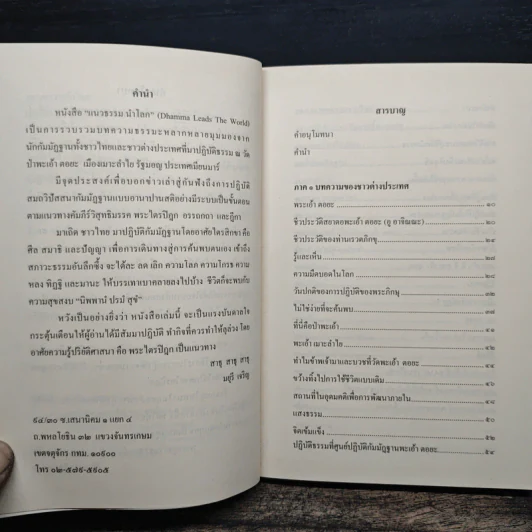 คำนำ
หนังสือ "แนวธรรม นำโลก" (Dhamma Leads The World)
เป็นการรวบรวมบทความธรรมะหลากหลายมุมมองจาก
นักกัมมัฏฐานทั้งชาวไทยและชาวต่างประเทศที่มาปฏิบัติธรรม ณ วัด
ป่าพะเอ้า ตอยะ เมืองเมาะลำไย รัฐมอญ ประเทศเมียนมาร์
มีจุดประสงค์เพื่อบอกข่าวเล่าสู่กันฟังถึงการปฏิบัติ
สมถวิปัสสนากัมมัฏฐานแบบอานาปานสติอย่างมีระบบเป็นขั้นตอน
ตามแนวทางคัมภีร์วิสุทธิมรรค พระไตรปิฎก อรรถกถา และฎีกา
มาเถิด ชาวไทย มาปฏิบัติกัมมัฏฐานโดยอาศัยไตรสิกขา คือ
ศีล สมาธิ และปัญญา เพื่อการเดินทางสู่การค้นพบตนเอง เข้าถึง
สภาวะธรรมอันลึกซึ้ง จะได้ละ ลด เลิก ความโลภ ความโกรธ ความ
หลง ทิฏฐิ และมานะ ให้บรรเทาเบาคลายลงไปบ้าง ชีวิตก็จะพบกับ
ความสุขสงบ "นิพพานํ ปรมํ สุขํ"
หวังเป็นอย่างยิ่งว่า หนังสือเล่มนี้ จะเป็นแรงบันดาลใจ
กระตุ้นเตือนให้ผู้อ่านได้มีสัมมาปฏิบัติ ทำกิจที่ควรทำให้ลุล่วง โดย
อาศัยความรู้ปริยัติศาสนา คือ พระไตรปิฎก เป็นแนวทาง
สาธุ สาธุ สาธุ
มยุรี เจริญ
๙๔/๓๐ ซ.เสนานิคม ๑ แยก ๔
ถ.พหลโยธิน ๓๒ แขวงจันทรเกษม
เขตจตุจักร กทม. ๑๐๙๐๐
โทร ๐๒-๕๗๙-๕๙๐๕
สารบาญ
คำอนุโมทนา
คำนำ
ภาค ๑ บทความของชาวต่างประเทศ
พระเอ้า ตอยะ ๑๐
ชีวประวัติสยาดอพะเอ้า ตอยะ (อู อาจิณณะ) ๒๑
ชีวประวัติของท่านเรวตภิกขุ ๒๔
รู้และเห็น ๒๗
ความมืดบอดในโลก ๓๔
วันปกติของการปฏิบัติของพระภิกษุ ๓๗
ไม่ใช่ง่ายที่จะค้นพบ ๓๙
ที่นี่คือป่าพะเอ้า ๔๑
พะเอ้า เมาะลำไย ๔๔
ทำไมข้าพเจ้ามาและบวชที่วัดพะเอ้า ตอยะ ๔๖
ขว้างทิ้งไปการใช้ชีวิตแบบเดิม ๔๘
สถานที่ในอุดมคติเพื่อการพัฒนาภายใน
แสงธรรม
จิตเข้มแข็ง ๕๒
ปฏิบัติธรรมที่ศูนย์ปฏิบัติกัมมัฏฐานพะเอ้า ตอยะ ๕๔